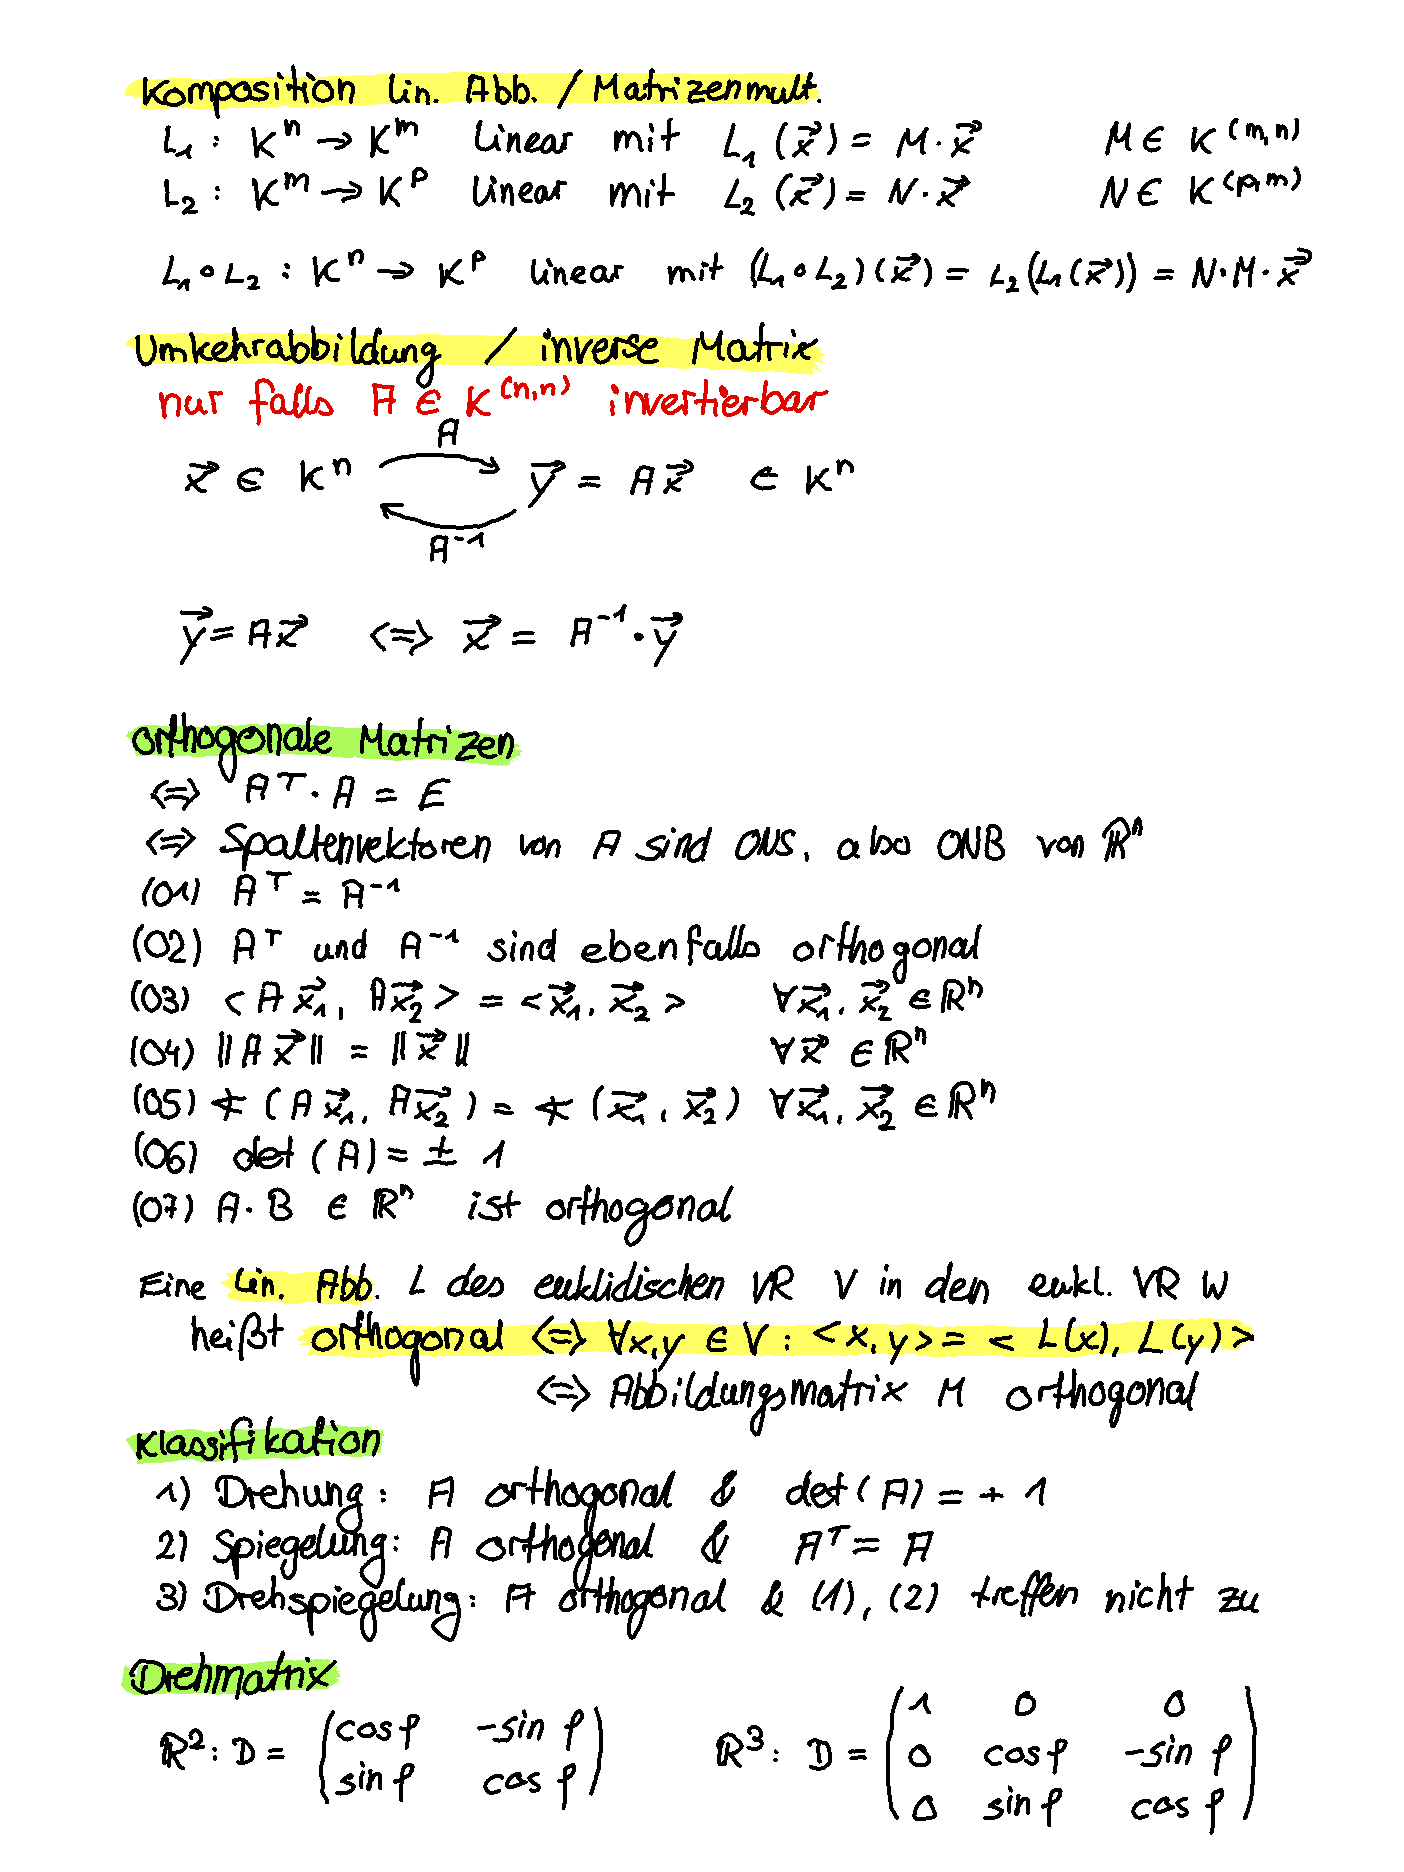 Komposition lin. Abb. / Matrizenmult.
L₁ : Kⁿ → Kᵐ linear mit L₁ (x⃗) = M · x⃗ M ∈ K⁽ᵐ,ⁿ⁾
L₂ : Kᵐ → Kᵖ linear mit L₂ (x⃗) = N · x⃗ N ∈ K⁽ᵖ,ᵐ⁾
L₁ ∘ L₂ : Kⁿ → Kᵖ linear mit (L₁ ∘ L₂) (x⃗) = L₂ (L₁ (x⃗)) = N · M · x⃗
Umkehrabbildung / inverse Matrix
nur falls A ∈ K⁽ⁿ,ⁿ⁾ invertierbar
A
x⃗ ∈ Kⁿ y⃗ = Ax⃗ ∈ Kⁿ
A⁻¹
y⃗ = Ax⃗ <=> x⃗ = A⁻¹ · y⃗
orthogonale Matrizen
<=> Aᵀ · A = E
<=> Spaltenvektoren von A sind ONS, also ONB von ℝⁿ
(O1) Aᵀ = A⁻¹
(O2) Aᵀ und A⁻¹ sind ebenfalls orthogonal
(O3) < A x⃗₁, A x⃗₂ > = < x⃗₁, x⃗₂ > ∀ x⃗₁, x⃗₂ ∈ ℝⁿ
(O4) ‖ A x⃗ ‖ = ‖ x⃗ ‖ ∀ x⃗ ∈ ℝⁿ
(O5) ∢ (A x⃗₁, A x⃗₂) = ∢ (x⃗₁, x⃗₂) ∀ x⃗₁, x⃗₂ ∈ ℝⁿ
(O6) det (A) = ± 1
(O7) A · B ∈ ℝⁿ ist orthogonal
Eine lin. Abb. L des euklidischen VR V in den eukl. VR W
heißt orthogonal <=> ∀x,y ∈ V : <x,y> = < L(x), L(y) >
<=> Abbildungsmatrix M orthogonal
Klassifikation
1) Drehung: A orthogonal & det (A) = + 1
2) Spiegelung: A orthogonal & Aᵀ = A
3) Drehspiegelung: A orthogonal & (1), (2) treffen nicht zu
Drehmatrix
1 0 0
cos φ -sin φ
ℝ²: D = ℝ³: D = 0 cos φ -sin φ
sin φ cos φ
0 sin φ cos φ